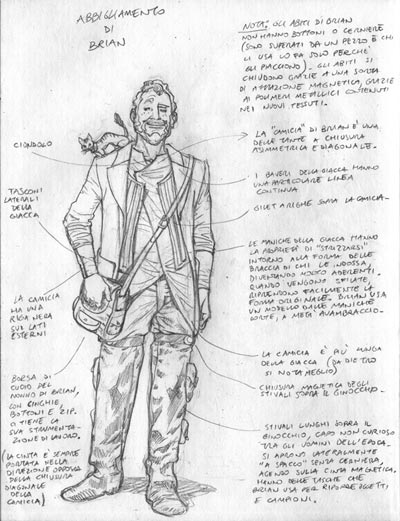 ABBIGLIAMENTO
DI
BRIAN
NOTA: GLI ABITI DI BRIAN
NON HANNO BOTTONI O CERNIERE
(SONO SUPERATI DA UN PEZZO E CHI
LI USA LO FA SOLO PERCHE'
GLI PIACCIONO). GLI ABITI SI
CHIUDONO GRAZIE A UNA SORTA
DI ATTRAZIONE MAGNETICA, GRAZIE
AI POLIMERI METALLICI CONTENUTI
NEI NUOVI TESSUTI.
CIONDOLO
TASCONI
LATERALI
DELLA
GIACCA
LA CAMICIA
HA UNA
RIGA NERA
SUI LATI
ESTERNI
BORSA DI
CUOIO DEL
NONNO DI BRIAN,
CON CINGHIE,
BOTTONI E ZIP.
CI TIENE LA
SUA STRUMENTA-
ZIONE DI LAVORO.
(LA CINTA È SEMPRE
PORTATA NELLA
DIREZIONE OPPOSTA
DELLA CHIUSURA
DIAGONALE
DELLA
CAMICIA)
LA "CAMICIA" DI BRIAN È UNA
DELLE TANTE A CHIUSURA
ASIMMETRICA E DIAGONALE.
I BAVERI DELLA GIACCA HANNO
UNA PARTICOLARE LINEA
CONTINUA
GILET A RIGHE SOPRA LA CAMICIA
LE MANICHE DELLA GIACCA HANNO
LA PROPRIETÀ DI "STRIZZARSI"
INTORNO ALLA FORMA DELLE
BRACCIA DI CHI LE INDOSSA,
DIVENTANDO MOLTO ADERENTI.
QUANDO VENGONO SFILATE,
RIPRENDONO FACILMENTE LA
FORMA ORIGINALE. BRIAN USA
UN MODELLO DALLE MANICHE
CORTE, A METÀ AVAMBRACCIO.
LA CAMICIA È PIÙ LUNGA
DELLA GIACCA (DA DIETRO
SI NOTA MEGLIO)
CHIUSURA MAGNETICA DEGLI
STIVALI SOPRA IL GINOCCHIO.
STIVALI LUNGHI SOPRA IL
GINOCCHIO, CAPO NON CURIOSO
TRA GLI UOMINI DELL'EPOCA.
SI APRONO LATERALMENTE
"A SPACCO" SENZA CERNIERA,
AGENDO SULLA CINTA MAGNETICA.
HANNO DELLE TASCHE CHE
BRIAN USA PER RIPORRE OGGETTI
E CAMPIONI.